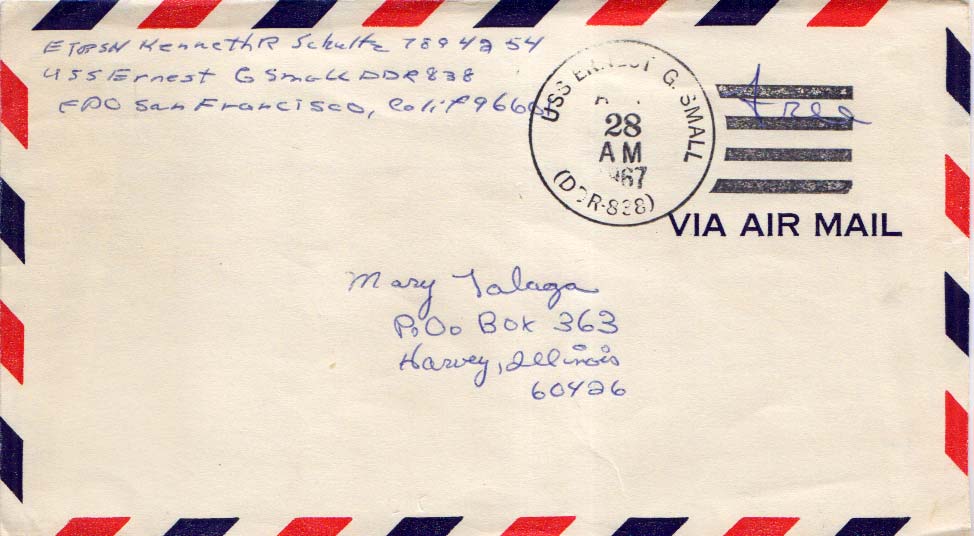 Kenneth R Schultz 789 42 54
USS Ernest G Small DDR 838
FPO San Francisco, Calif 9660
USS ERNEST G. SMALL
28
AM
1967
(DDR-838)
Free
VIA AIR MAIL
Mary Talaga
P.O. Box 363
Harvey, Illinois
60426